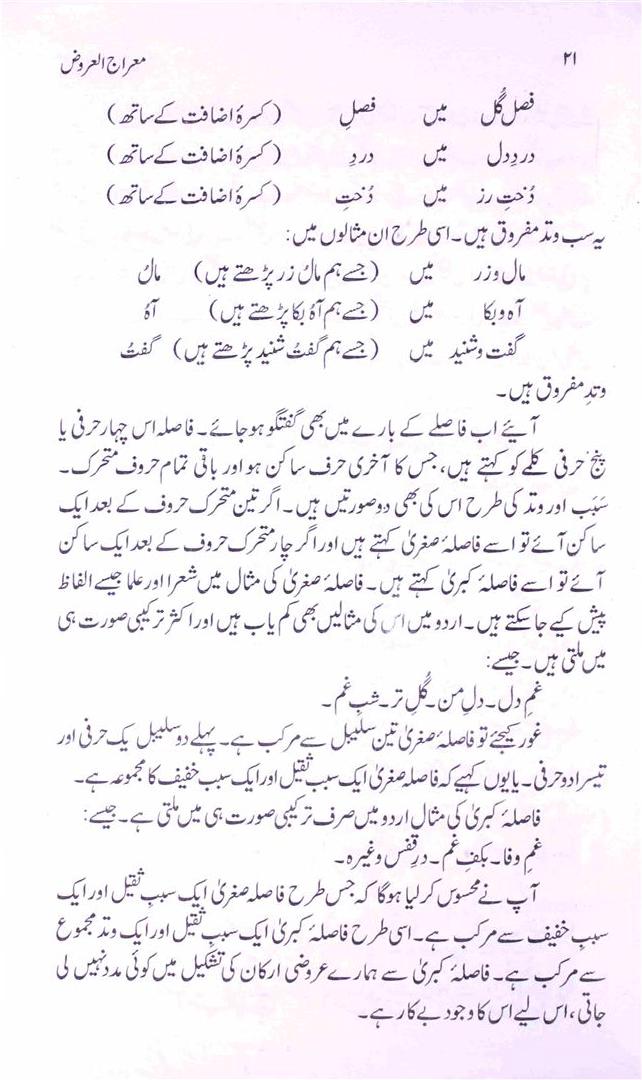 ۲۱ معراج العروض
فصل گُل میں فصلِ (کسرۂ اضافت کے ساتھ)
دردِ دل میں دردِ (کسرۂ اضافت کے ساتھ)
دُختِ رز میں دُختِ (کسرۂ اضافت کے ساتھ)
یہ سب وتد مفروق ہیں۔ اسی طرح ان مثالوں میں:
مال و زر میں (جسے ہم مالُ زر پڑھتے ہیں) مالُ
آہ و بکا میں (جسے ہم آہُ بکا پڑھتے ہیں) آہُ
گفت و شنید میں (جسے ہم گفتُ شنید پڑھتے ہیں) گفتُ
وتدِ مفروق ہیں۔
آیئے اب فاصلے کے بارے میں بھی گفتگو ہو جائے۔ فاصلہ اس چہار حرفی یا
پنج حرفی کلمے کو کہتے ہیں، جس کا آخری حرف ساکن ہو اور باقی تمام حروف متحرک۔
سَبَب اور وتد کی طرح اس کی بھی دو صورتیں ہیں۔ اگر تین متحرک حروف کے بعد ایک
ساکن آئے تو اسے فاصلۂ صغریٰ کہتے ہیں اور اگر چار متحرک حروف کے بعد ایک ساکن
آئے تو اسے فاصلۂ کبریٰ کہتے ہیں۔ فاصلۂ صغریٰ کی مثال میں شعرا اور علما جیسے الفاظ
پیش کیے جا سکتے ہیں۔ اردو میں اس کی مثالیں بھی کم یاب ہیں اور اکثر ترکیبی صورت ہی
میں ملتی ہیں۔ جیسے:
غمِ دل۔ دلِ من۔ گُلِ تر۔ شبِ غم۔
غور کیجئے تو فاصلۂ صغریٰ تین سلیبل سے مرکب ہے۔ پہلے دو سلیبل یک حرفی اور
تیسرا دو حرفی۔ یا یوں کہیے کہ فاصلہ صغریٰ ایک سبب ثقیل اور ایک سبب خفیف کا مجموعہ ہے۔
فاصلۂ کبریٰ کی مثال اردو میں صرف ترکیبی صورت ہی میں ملتی ہے۔ جیسے:
غمِ وفا۔ بکفِ غم۔ درِ قفس وغیرہ۔
آپ نے محسوس کر لیا ہوگا کہ جس طرح فاصلہ صغریٰ ایک سببِ ثقیل اور ایک
سببِ خفیف سے مرکب ہے۔ اسی طرح فاصلۂ کبریٰ ایک سببِ ثقیل اور ایک وتد مجموع
سے مرکب ہے۔ فاصلۂ کبریٰ سے ہمارے عروضی ارکان کی تشکیل میں کوئی مدد نہیں لی
جاتی، اس لیے اس کا وجود بے کار ہے۔